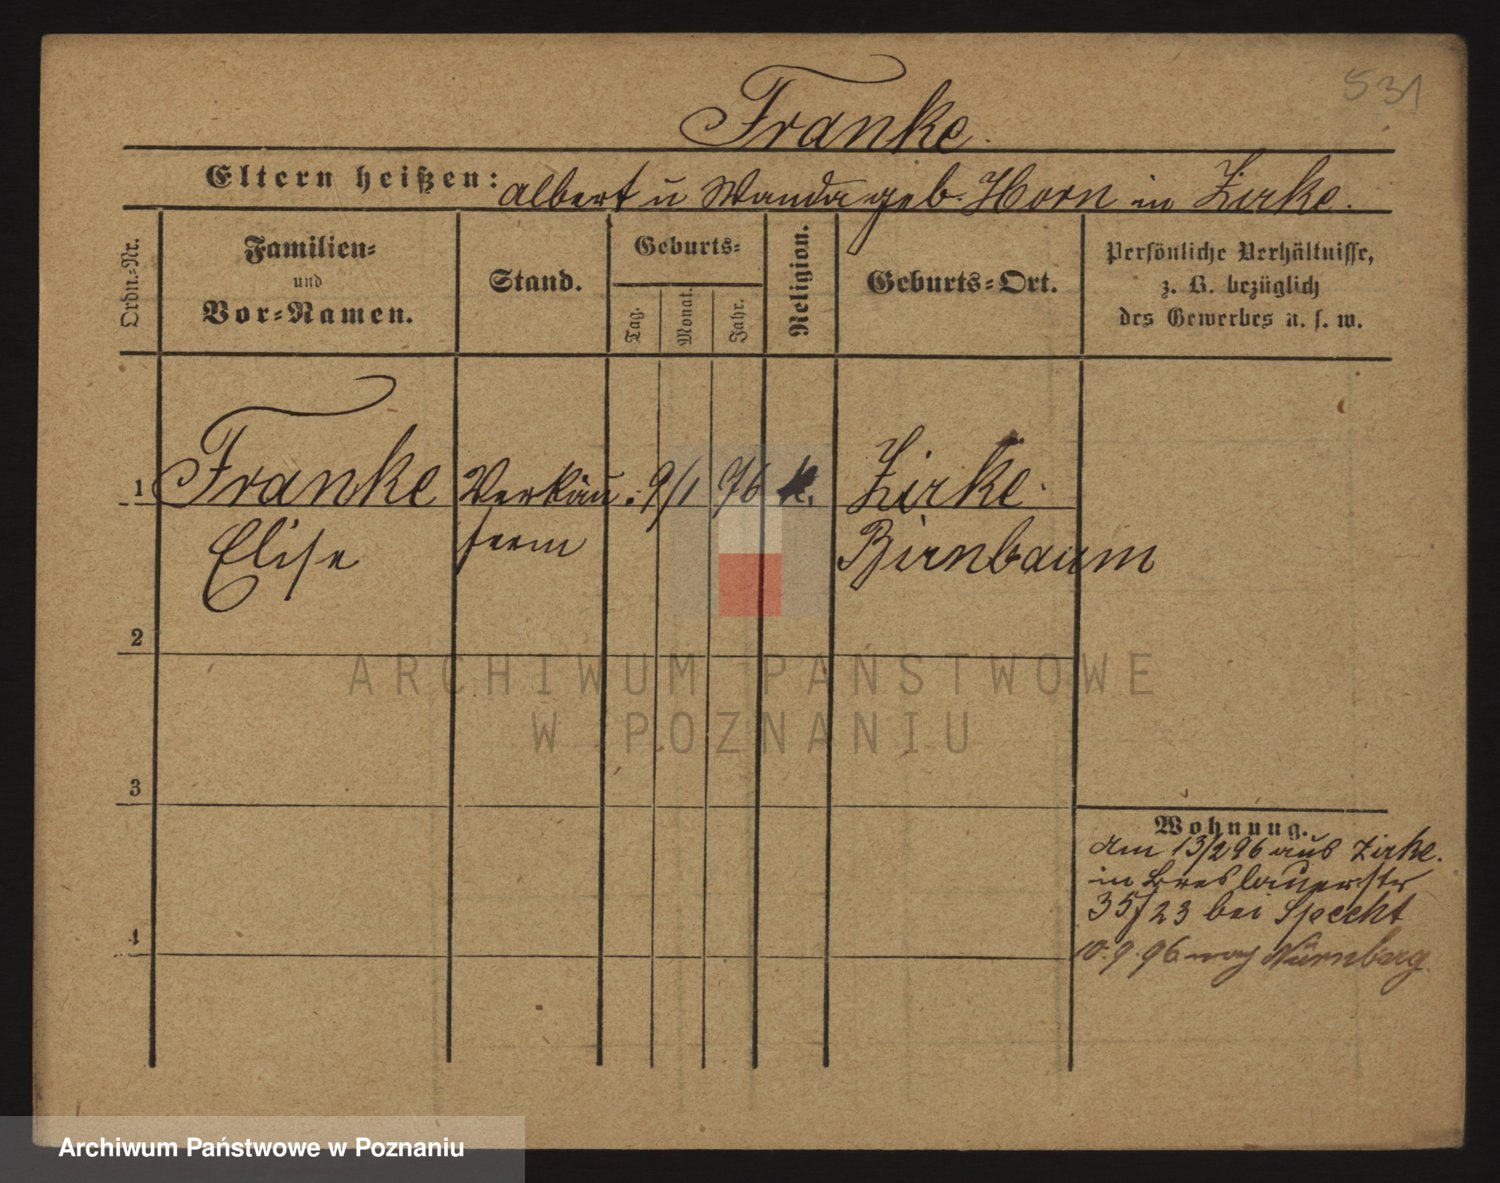 531
Franke.
Eltern heißen: Albert u Wanda geb. Horn in Zirke.
Ordn.-Nr.
Familien-
und
Vor-Namen.
Stand.
Geburts-
Tag.
Monat.
Jahr.
Religion.
Geburts-Ort.
Persönliche Verhältnisse,
z. B. bezüglich
des Gewerbes u. s. w.
1 Franke Verkäu- 9/1 76 k. Zirke.
Elise ferin Birnbaum
2
ARCHIWUM PAŃSTWOWE
W POZNANIU
3
Wohnung.
Am 13/2 96 aus Zirke.
in Breslauerstr
35/23 bei Specht
4
10.9.96 nach Nürnberg.
Archiwum Państwowe w Poznaniu